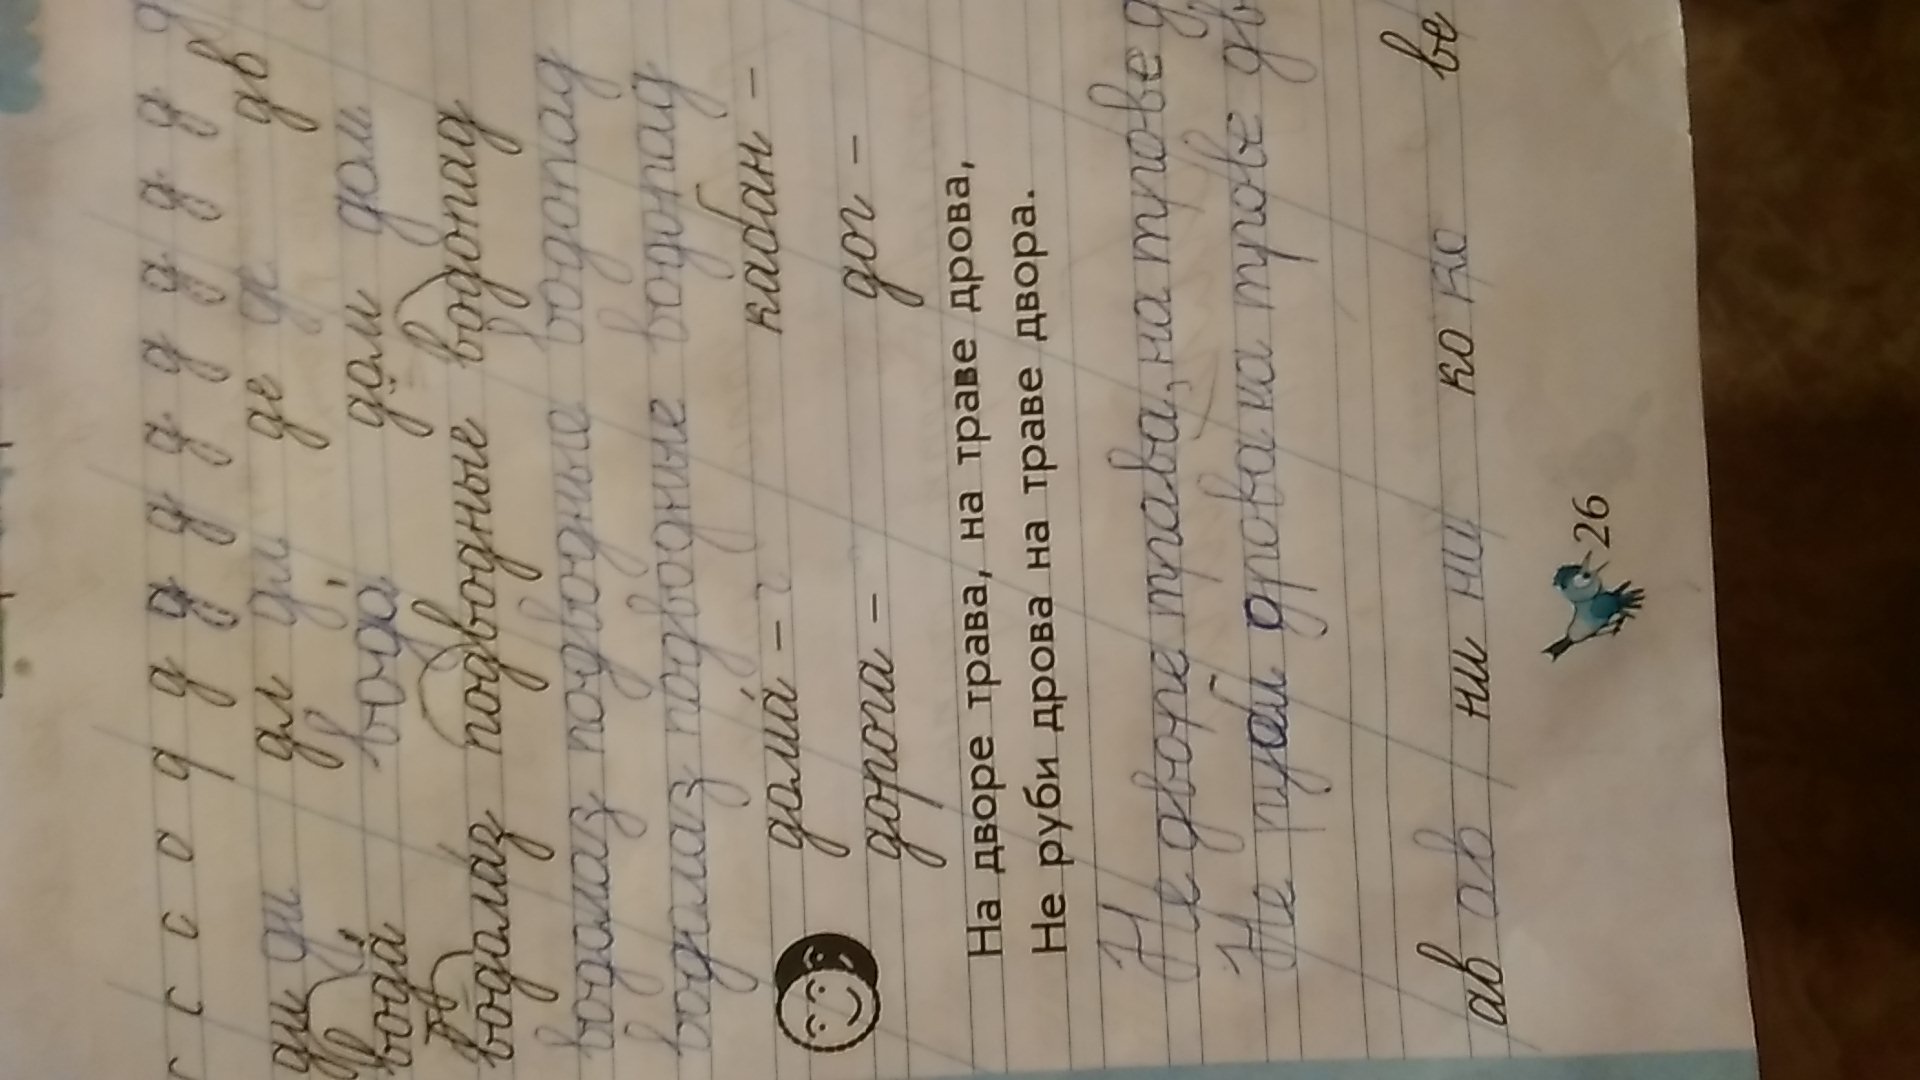 с с с о д д д д д д д д д д
ди ди дл дл де де дв
вода́ вода́ дом дом
водола́з подводные водопад
водолаз подводные водопад
водолаз подводные водопад
дома́ – кабан –
дорога – дог –
На дворе трава, на траве дрова,
Не руби дрова на траве двора.
Не дворе трава, на трове д
Не руби дрова на трове дв
ав ав ни ни ко ко ве
26